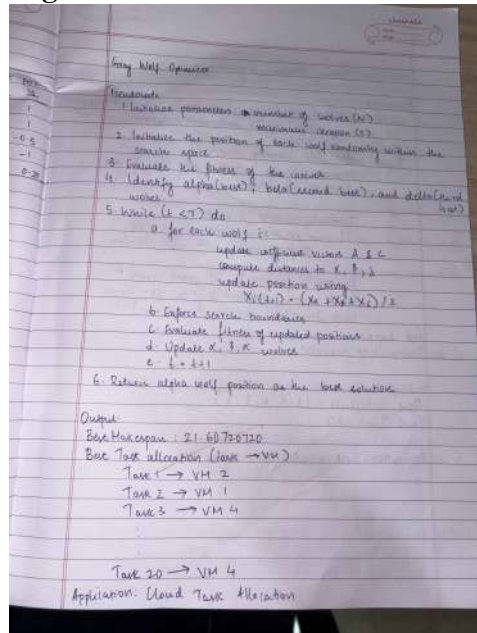 Gray Wolf Optimizer
Pseudocode
1. Initialize parameters number of wolves (N)
maximum iteration (T)
2. Initialize the position of each wolf randomly within the
search space
3. Evaluate the fitness of the wolves
4. Identify alpha (best), beta (second best), and delta (third
best)
wolves
5. While (t < T) do
a. for each wolf i:
update coefficient vectors A & C
compute distances to
update position using
b. Enforce search boundaries
c. Evaluate fitness of updated positions
d. Update wolves
e. t = t+1
6. Return alpha wolf position as the best solution
Output:
Best Makespan : 21.60720720
Best Task allocation (Task → VM) :
Task 1 → VM 2
Task 2 → VM 1
Task 3 → VM 4
Task 20 → VM 4
Application: Cloud Task Allocation